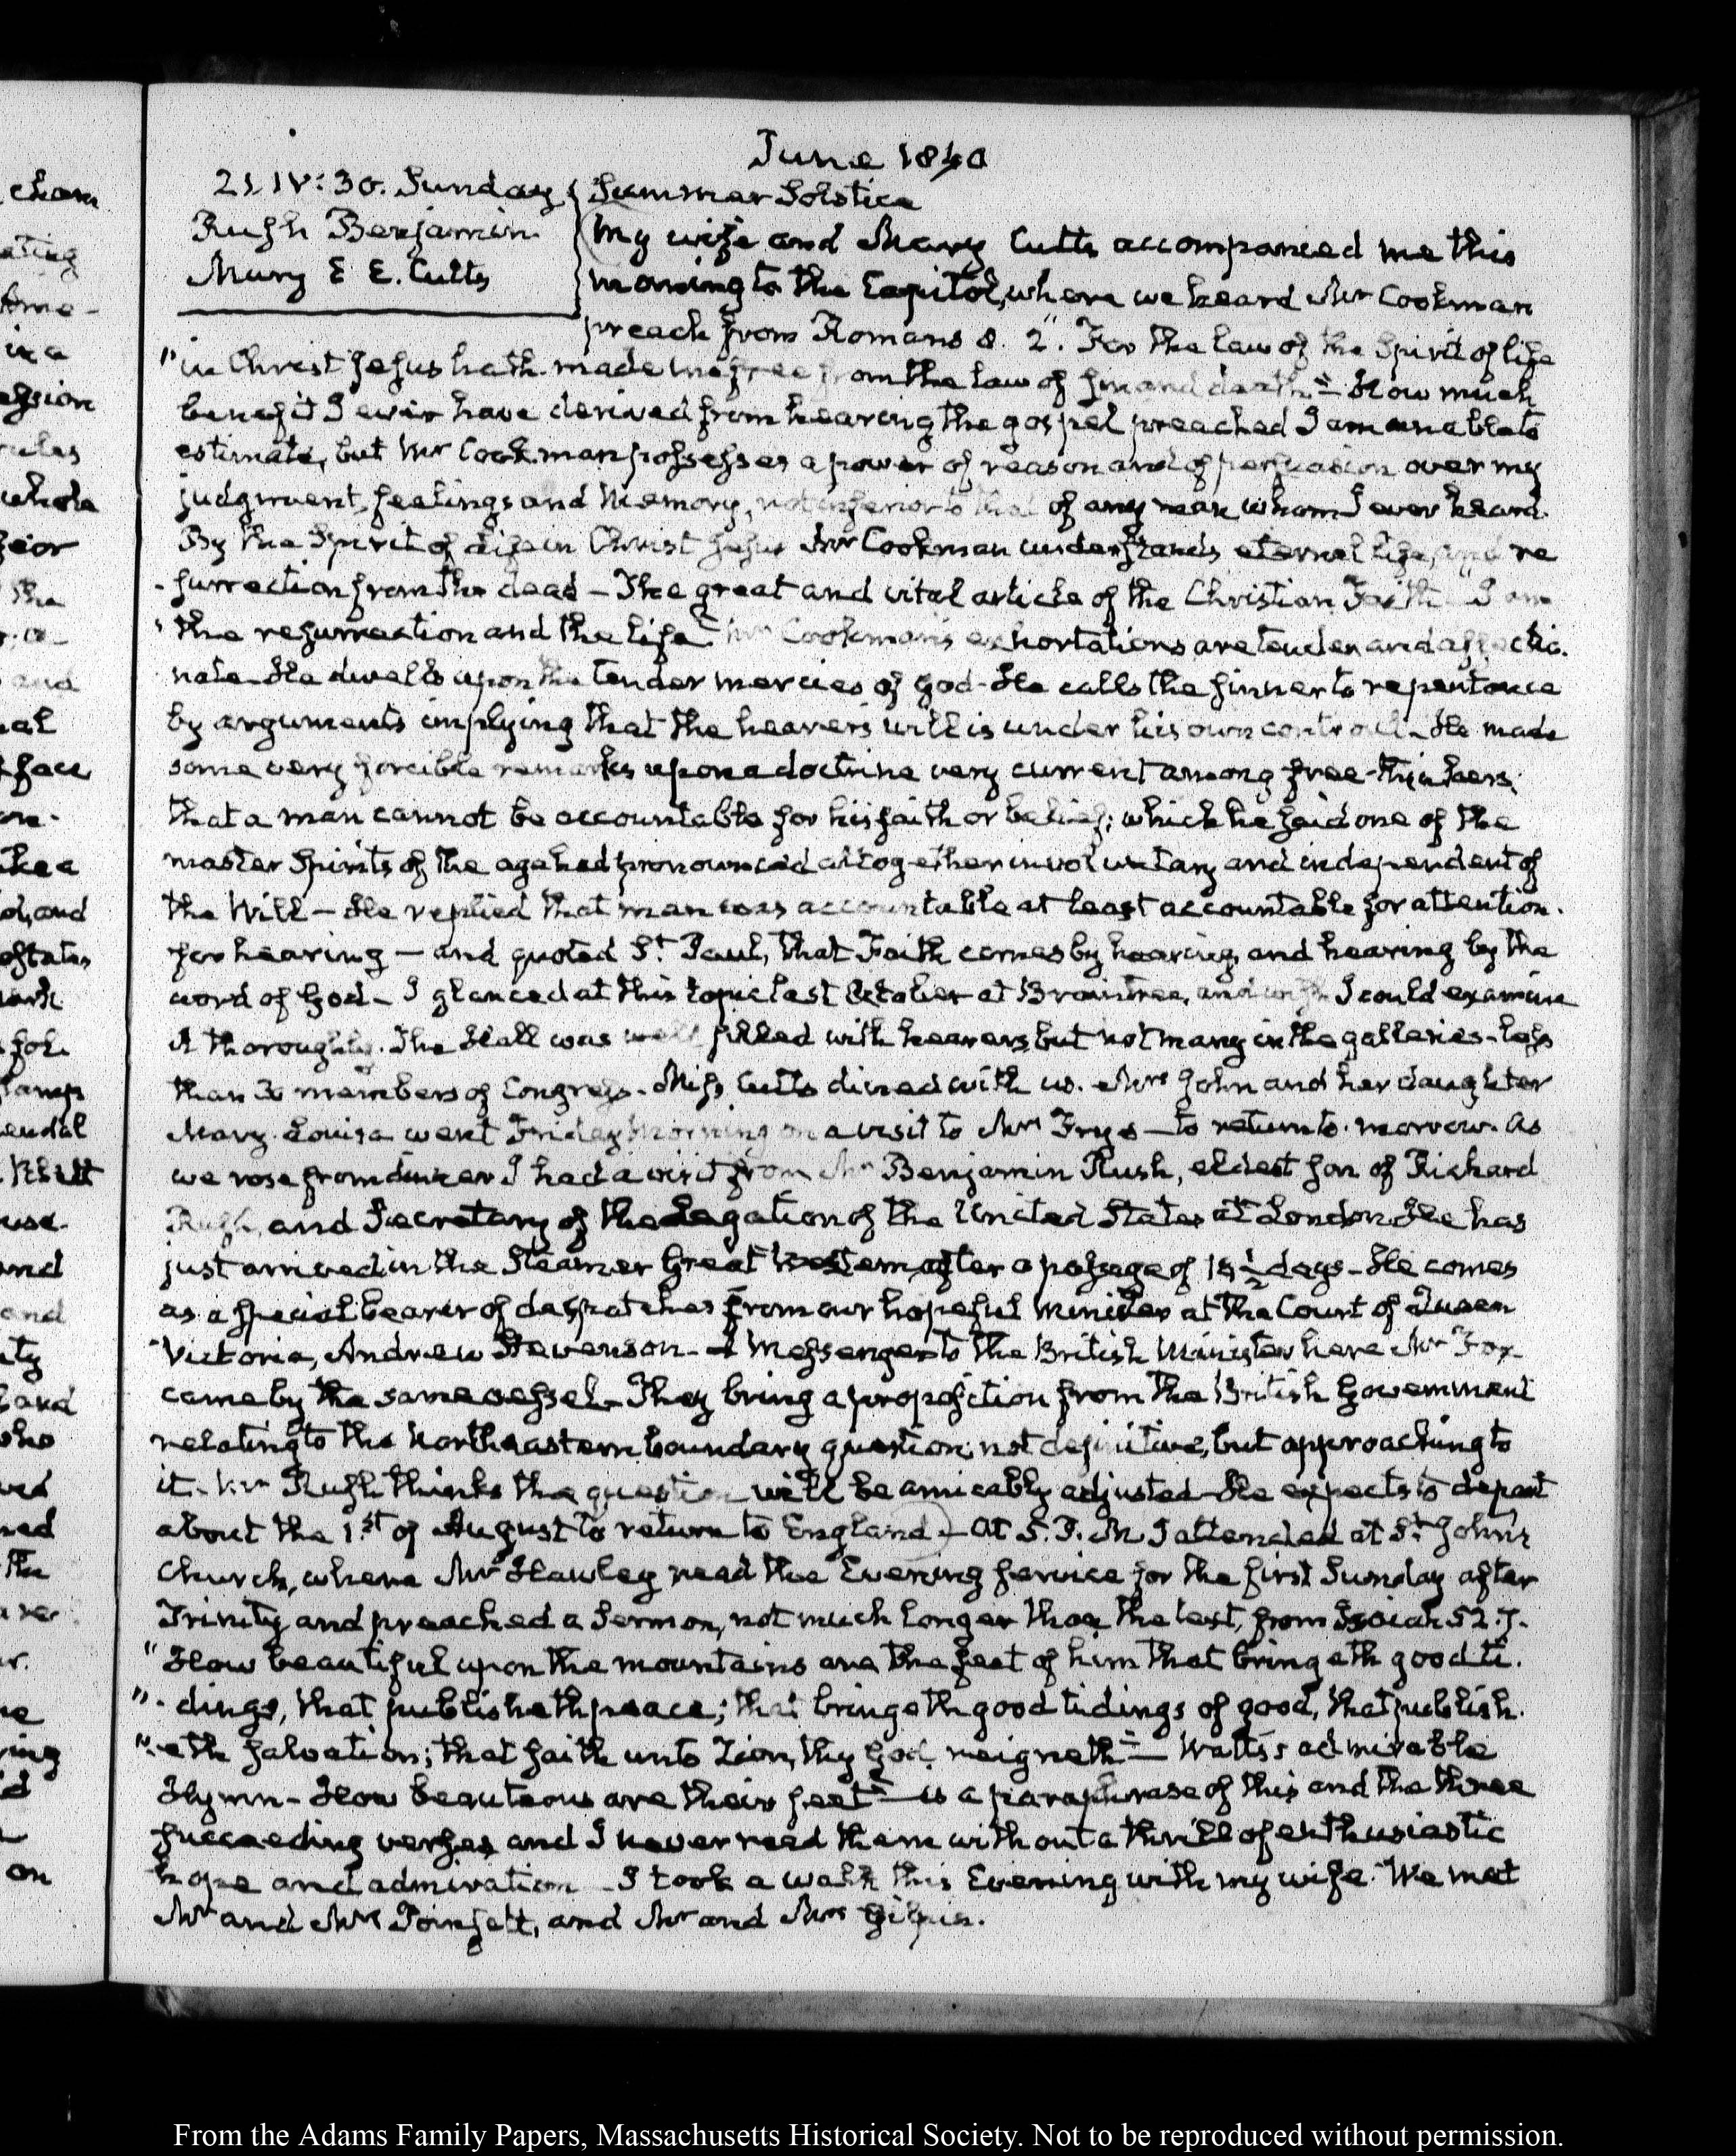 June 1840
21. IV: 30. Sunday
Rush Benjamin
Mary E E. Cutts
Summer Solstice
My wife and Mary Cutts accompanied me this
morning to the Capitol, where we heard Mr Cookman
preach from Romans 8. 2. "For the law of the Spirit of life
"in Christ Jesus hath made me free from the law of sin and death"— How much
benefit I ever have derived from hearing the gospel preached I am unable to
estimate, but Mr Cookman possesses a power of reason and of persuasion over my
judgment, feelings and memory, not inferior to that of any man whom I ever heard.
By the Spirit of life in Christ Jesus Mr Cookman understands eternal life, and re
-surrection from the dead — The great and vital article of the Christian Faith "I am
"the resurrection and the life" Mr Cookman's exhortations are tender and affectio-
nate. He dwells upon the tender mercies of God - He calls the sinner to repentance
by arguments implying that the hearer's will is under his own controul - He made
some very forcible remarks upon a doctrine very current among free-thinkers,
that a man cannot be accountable for his faith or belief; which he said one of the
master Spirits of the age had pronounced altogether involuntary and independent of
the Will — He replied that man was accountable at least accountable for attention.
for hearing — and quoted St. Paul, that Faith comes by hearing, and hearing by the
word of God - I glanced at this topic last October at Braintree, and wish I could examine
it thoroughly. The Hall was well filled with hearers, but not many in the galleries - less
than 30 members of Congress. Miss Cutts dined with us. Mrs John and her daughter
Mary Louisa went Friday Morning on a visit to Mrs Frye's — to return to-morrow. As
we rose from dinner I had a visit from Mr Benjamin Rush, eldest son of Richard
Rush, and Secretary of the Legation of the United States at London. He has
just arrived in the Steamer Great Western after a passage of 15½ days - He comes
as a special bearer of despatches from our hopeful Minister at the Court of Queen
Victoria, Andrew Stevenson - A Messenger to the British Minister here Mr Fox
came by the same vessel - They bring a proposition from the British Government
relating to the Northeastern boundary question, not definitive, but approaching to
it. Mr Rush thinks the question will be amicably adjusted - He expects to depart
about the 1st of August to return to England) — At 5. P. M I attended at St. John's
Church, where Mr Hawley read the Evening service for the first Sunday after
Trinity and preached a Sermon, not much longer than the text, from Isaiah 52. 7.
"How beautiful upon the mountains are the feet of him that bringeth good ti-
"-dings, that publisheth peace; that bringeth good tidings of good, that publish-
"-eth salvation; that saith unto Zion, thy God reigneth"— Watts's admirable
Hymn - How beauteous are their feet" — is a paraphrase of this and the three
succeeding verses and I never read them without a thrill of enthusiastic
hope and admiration - I took a walk this Evening with my wife. We met
Mr and Mrs Poinsett, and Mr and Mrs Gilpin.
From the Adams Family Papers, Massachusetts Historical Society. Not to be reproduced without permission.